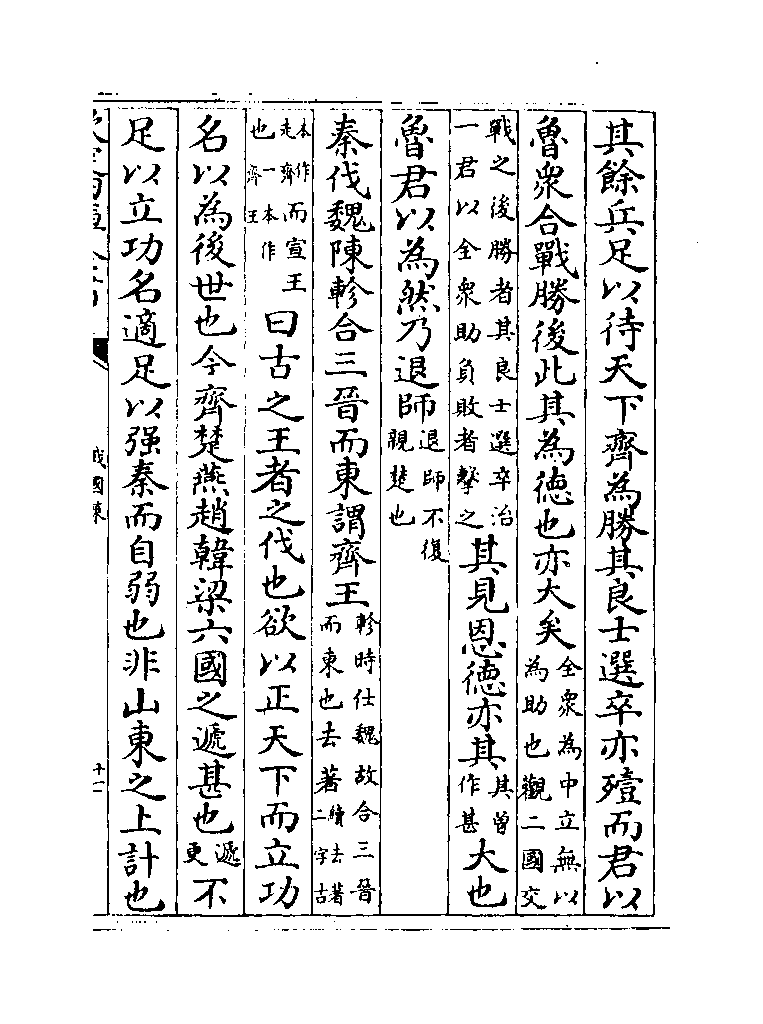 其餘兵足以待天下齊為勝其良士選卒亦殪而君以
魯衆合戰勝後此其為徳也亦大矣全衆為中立無以為助也觀二國交
戰之後勝者其良士選卒治一君以全衆助負敗者擊之其見恩徳亦其其曽作甚大也
魯君以為然乃退師退師不復親楚也
秦伐魏陳軫合三晉而東謂齊王軫時仕魏故合三晉而東也去著續去著二字古
本作走齊而宣王也一本作齊王曰古之王者之伐也欲以正天下而立功
名以為後世也今齊楚燕趙韓梁六國之遞甚也遞更不
足以立功名適足以强秦而自弱也非山東之上計也
戰國策
十一